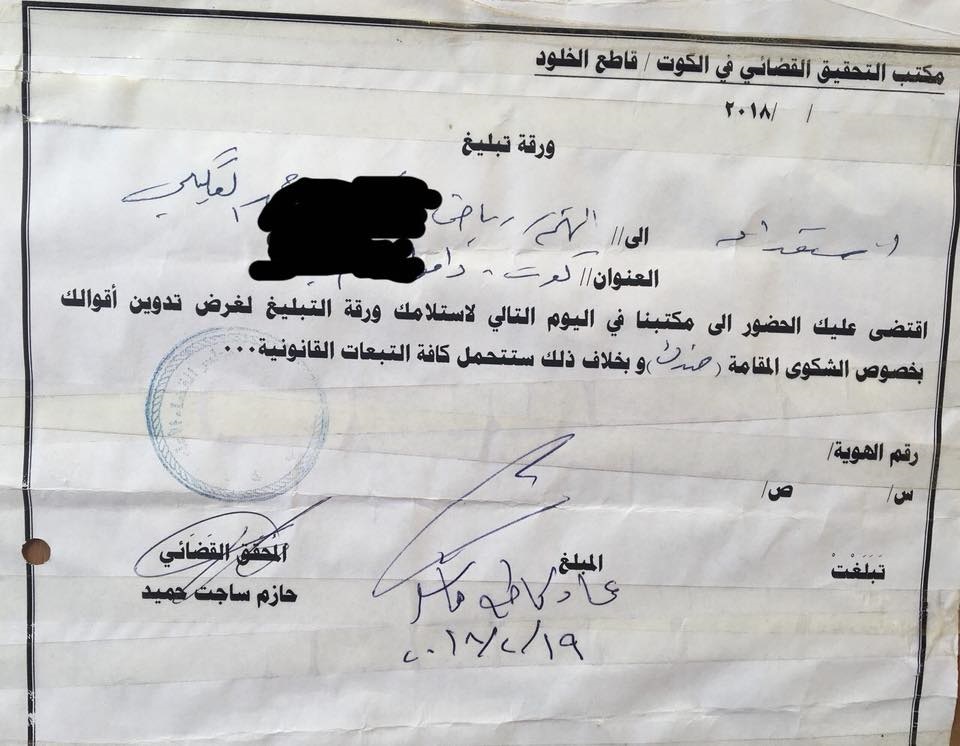 مكتب التحقيق القضائي في الكوت / قاطع الخلود
/ /٢٠١٨
ورقة تبليغ
استقدام
الى// المتهم رياض حمد العكيلي
العنوان// كوت -
اقتضى عليك الحضور الى مكتبنا في اليوم التالي لاستلامك ورقة التبليغ لغرض تدوين أقوالك
بخصوص الشكوى المقامة (ضدك) و بخلاف ذلك ستتحمل كافة التبعات القانونية...
رقم الهوية/
س/ ص/
تَبَلَغْتْ المبلغ المحقق القضائي
كاظم حازم ساجت حميد
٢٠١٨/٢/١٩